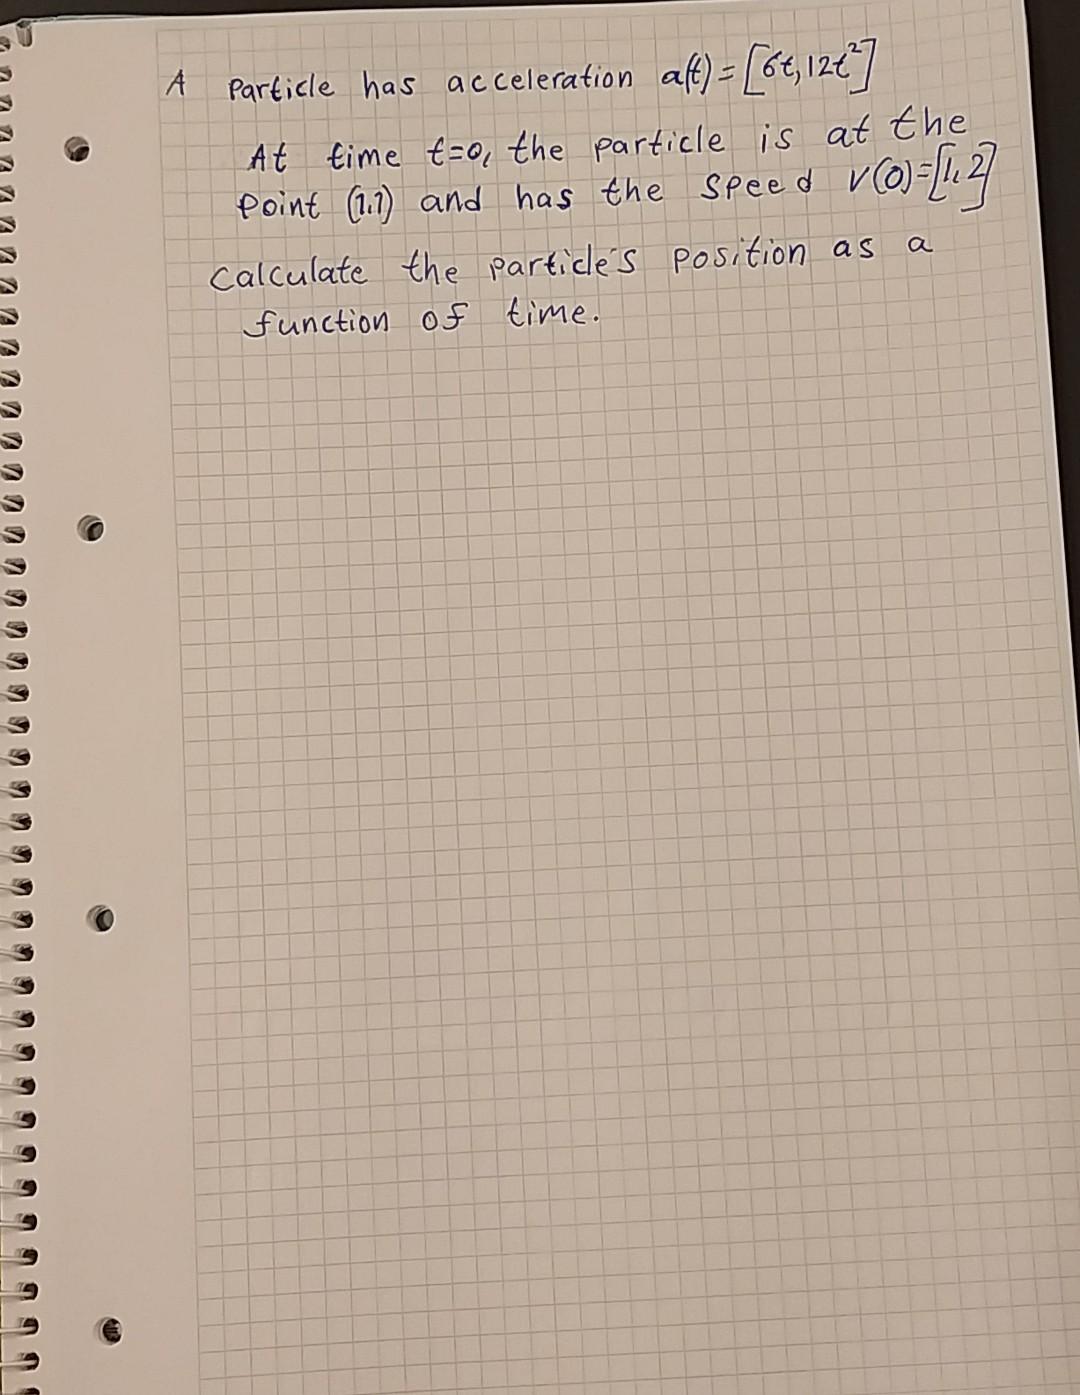 A particle has acceleration a(t)=[6t,12t²]
At time t=0, the particle is at the
point (1,1) and has the speed v(0)=[1,2]
Calculate the particle's position as a
function of time.